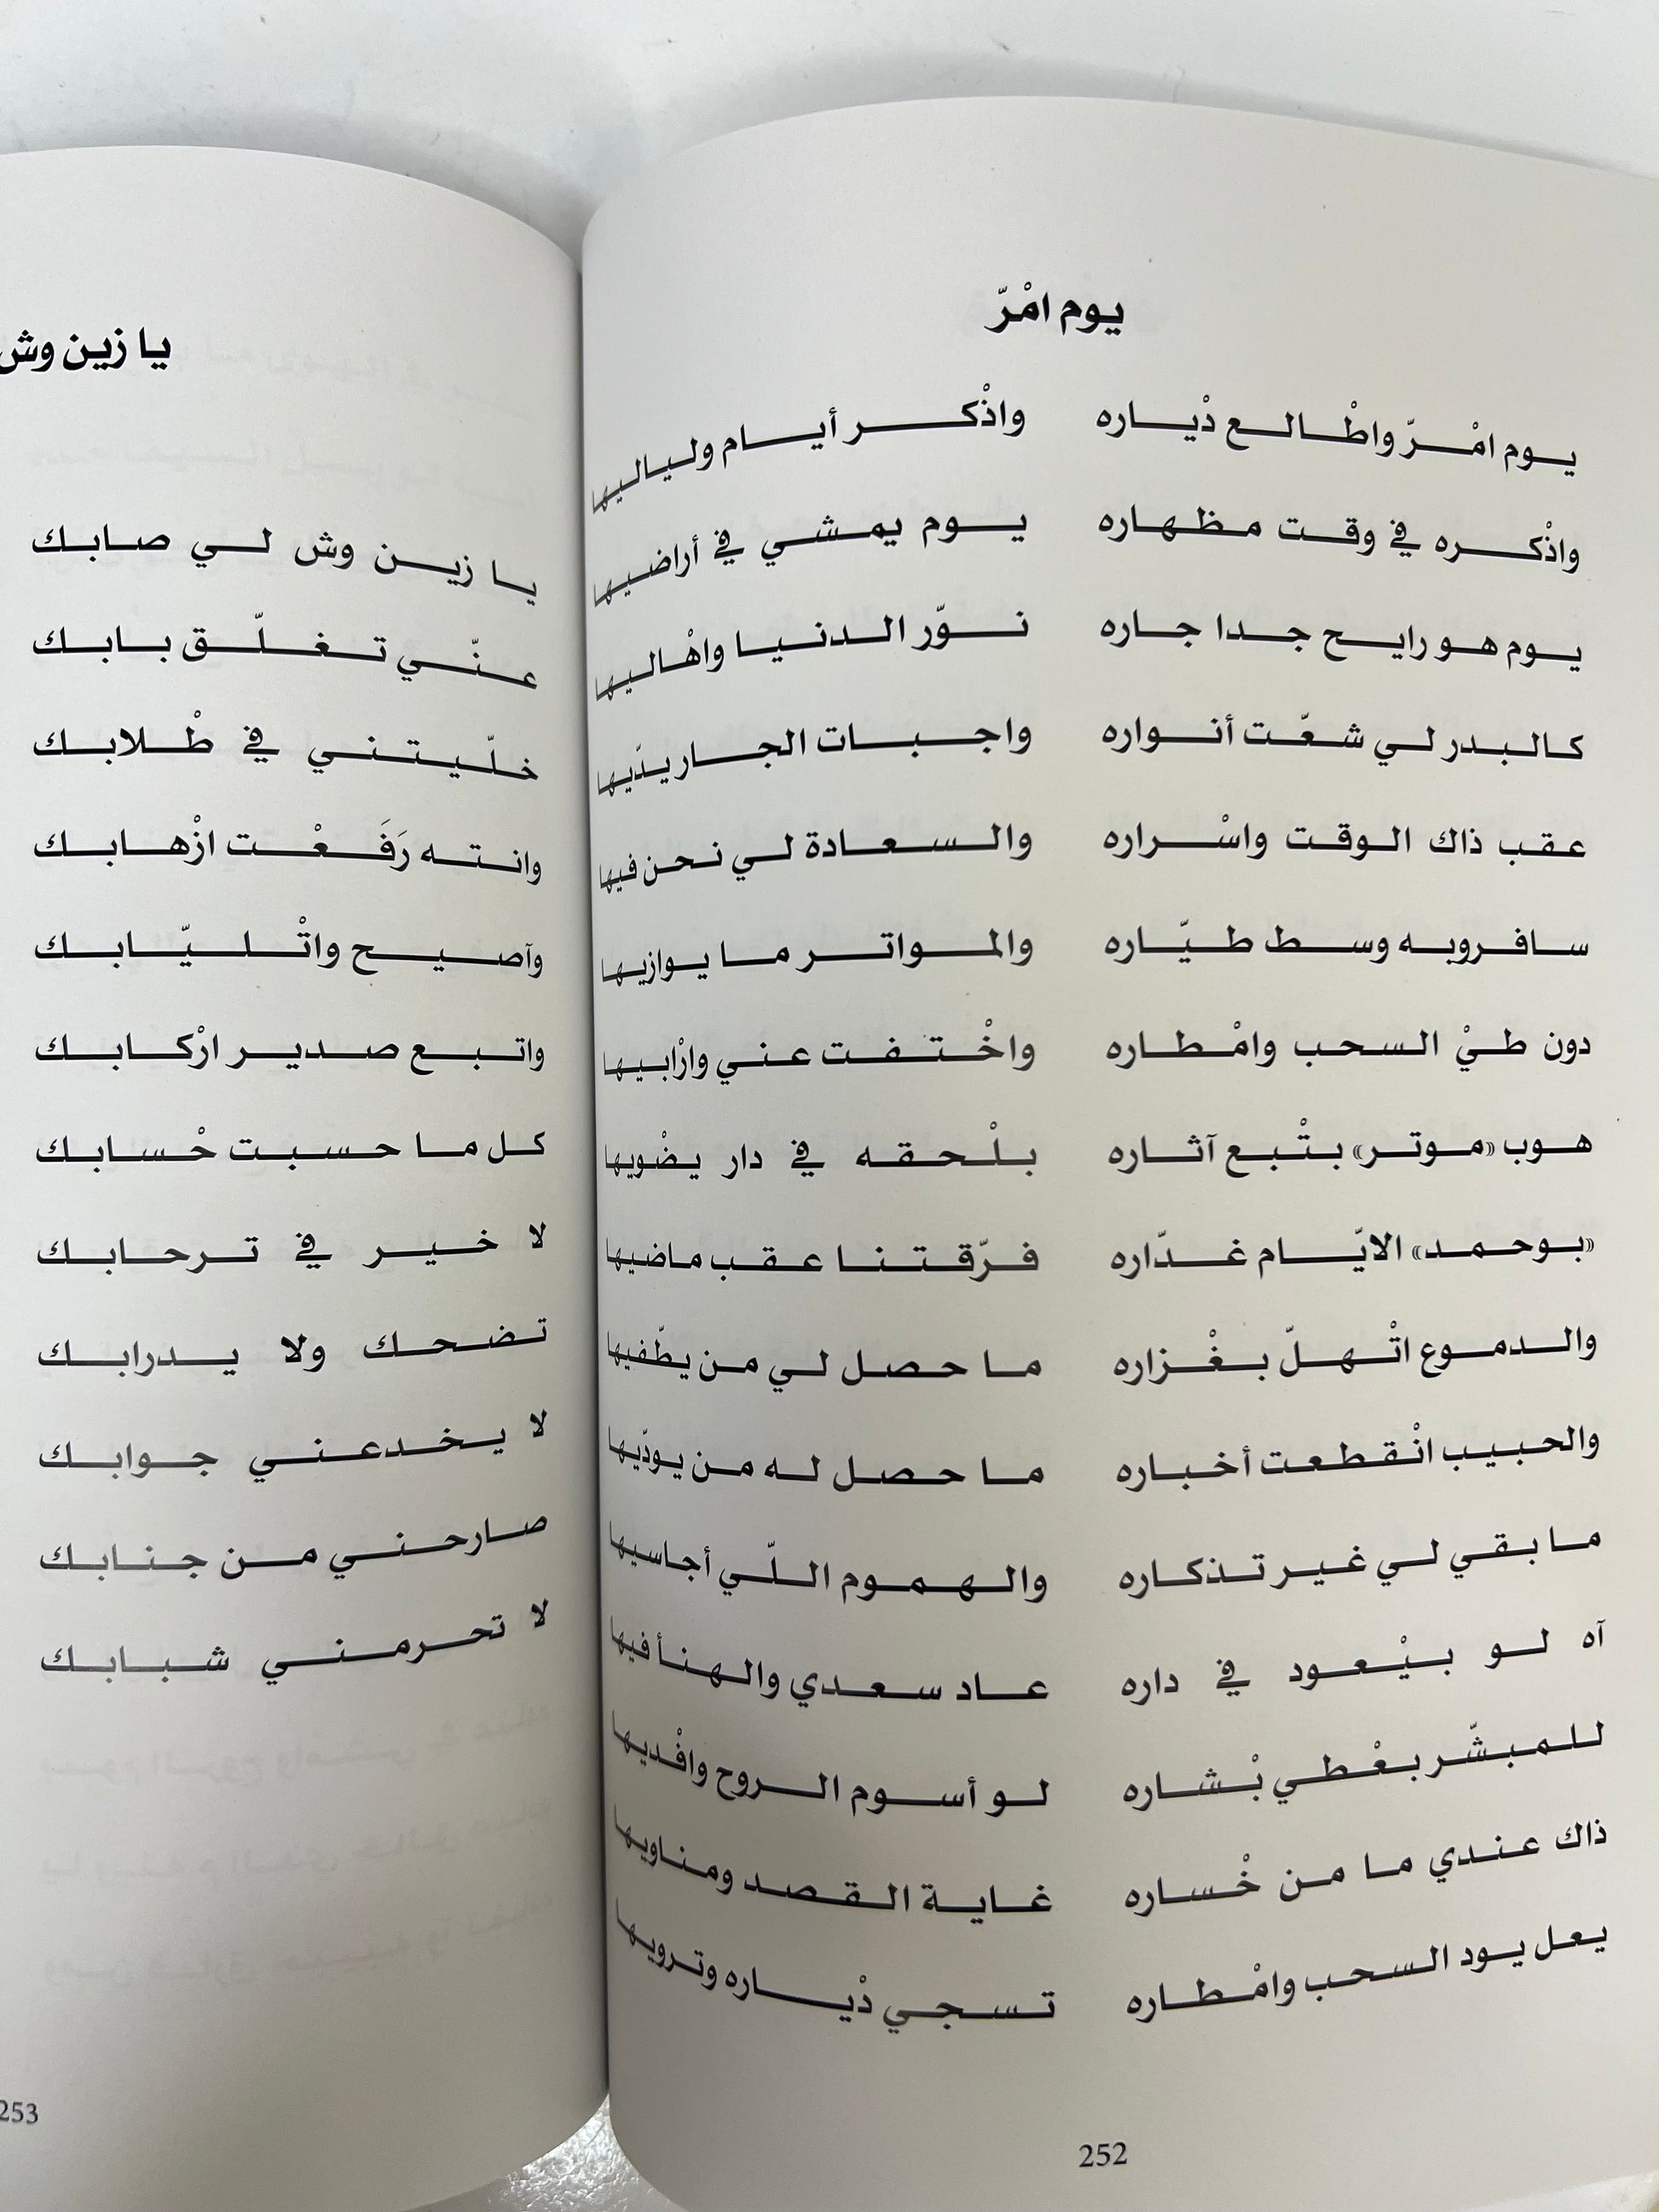 يوم امْرّ
يوم امْرّ واطْالع دْياره واذْكر أيام ولياليها
واذْكره في وقت مظهاره يوم يمشي في أراضيها
يوم هو رايح جدا جاره نوّر الدنيا واهْاليها
كالبدر لي شعّت أنواره واجبات الجار يدّيها
عقب ذاك الوقت واسْراره والسعادة لي نحن فيها
سافروبه وسط طيّاره والمواتر ما يوازيها
دون طيْ السحب وامْطاره واخْتفت عني وارْابيها
هوب «موتر» بتْبع آثاره بلْحقه في دار يضْويها
«بوحمد» الايّام غدّاره فرّقتنا عقب ماضيها
والدموع اتْهلّ بغْزاره ما حصل لي من يطّفيها
والحبيب انْقطعت أخباره ما حصل له من يودّيها
ما بقي لي غير تذكاره والهموم اللّي أجاسيها
آه لو بيْعود في داره عاد سعدي والهنأ فيها
للمبشّر بعْطي بْشاره لو أسوم الروح وافْديها
ذاك عندي ما من خْساره غاية القصد ومناويها
يعل يود السحب وامْطاره تسجي دْياره وترويها
252
يا زين وش
يا زين وش لي صابك
عنّي تغلّق بابك
خلّيتني في طْلابك
وانته رَفَعْت ازْهابك
وآصيح واتْليّابك
واتبع صدير ارْكابك
كل ما حسبت حْسابك
لا خير في ترحابك
تضحك ولا يدرابك
لا يخدعني جوابك
صارحني من جنابك
لا تحرمني شبابك
253